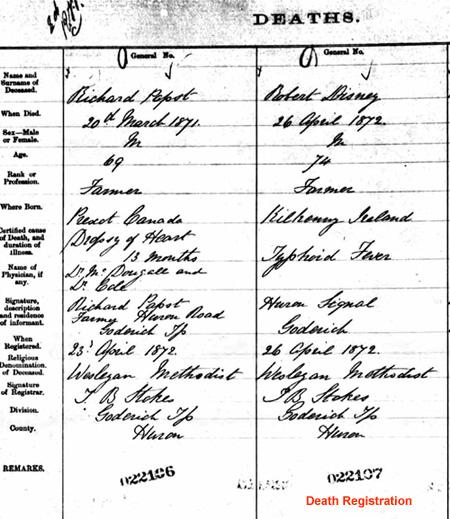 DEATHS.
General No.
General No.
Name and
Surname of
Deceased.
Richard Papst
Robert Disney
When Died.
20th March 1871.
26 April 1872.
Sex—Male
or Female.
M
M
Age.
69
74
Rank or
Profession.
Farmer
Farmer
Where Born.
Canada
Kilkenny Ireland
Certified cause
of Death, and
duration of
illness.
Dropsy of Heart
13 months
Typhoid Fever
Name of
Physician, if
any.
Dr. McDougall and
Dr Cole
Signature,
description
and residence
of informant.
Richard Papst
Farmer Huron Road
Goderich Tp
Huron Signal
Goderich
When
Registered.
23d April 1872.
26 April 1872.
Religious
Denomination
of Deceased.
Wesleyan Methodist
Wesleyan Methodist
Signature
of Registrar.
T B Stokes
T B Stokes
Division.
Goderich Tp
Goderich Tp
County.
Huron
Huron
REMARKS.
022196
022197
Death Registration